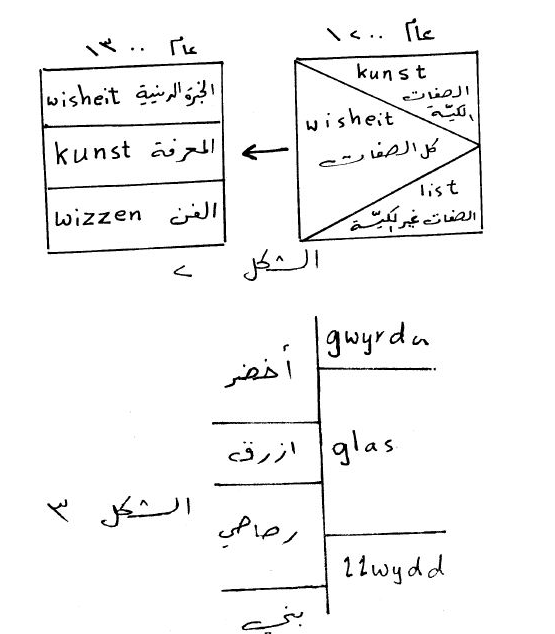 عام ١٢٠٠
kunst
الصفات
wisheit
كل الصفات
list
الصفات غير
عام ١٣٠٠
wisheit الخبرة الدينية
kunst المعرفة
wizzen الفن
الشكل ٢
أخضر
ازرق
glas
رصاصي
llwydd
بني
الشكل ٣